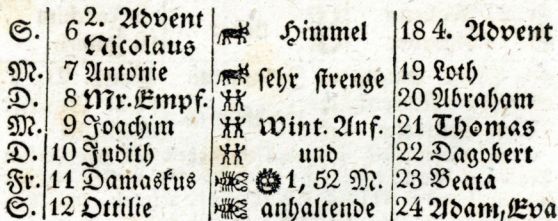 S. 6 2. Advent Nicolaus Himmel 18 4. Advent
M. 7 Antonie sehr strenge 19 Loth
D. 8 Mr. Empf. 20 Abraham
M. 9 Joachim Wint. Anf. 21 Thomas
D. 10 Judith und 22 Dagobert
Fr. 11 Damaskus 1, 52 M. 23 Beata
S. 12 Ottilie anhaltende 24 Adam, Eva